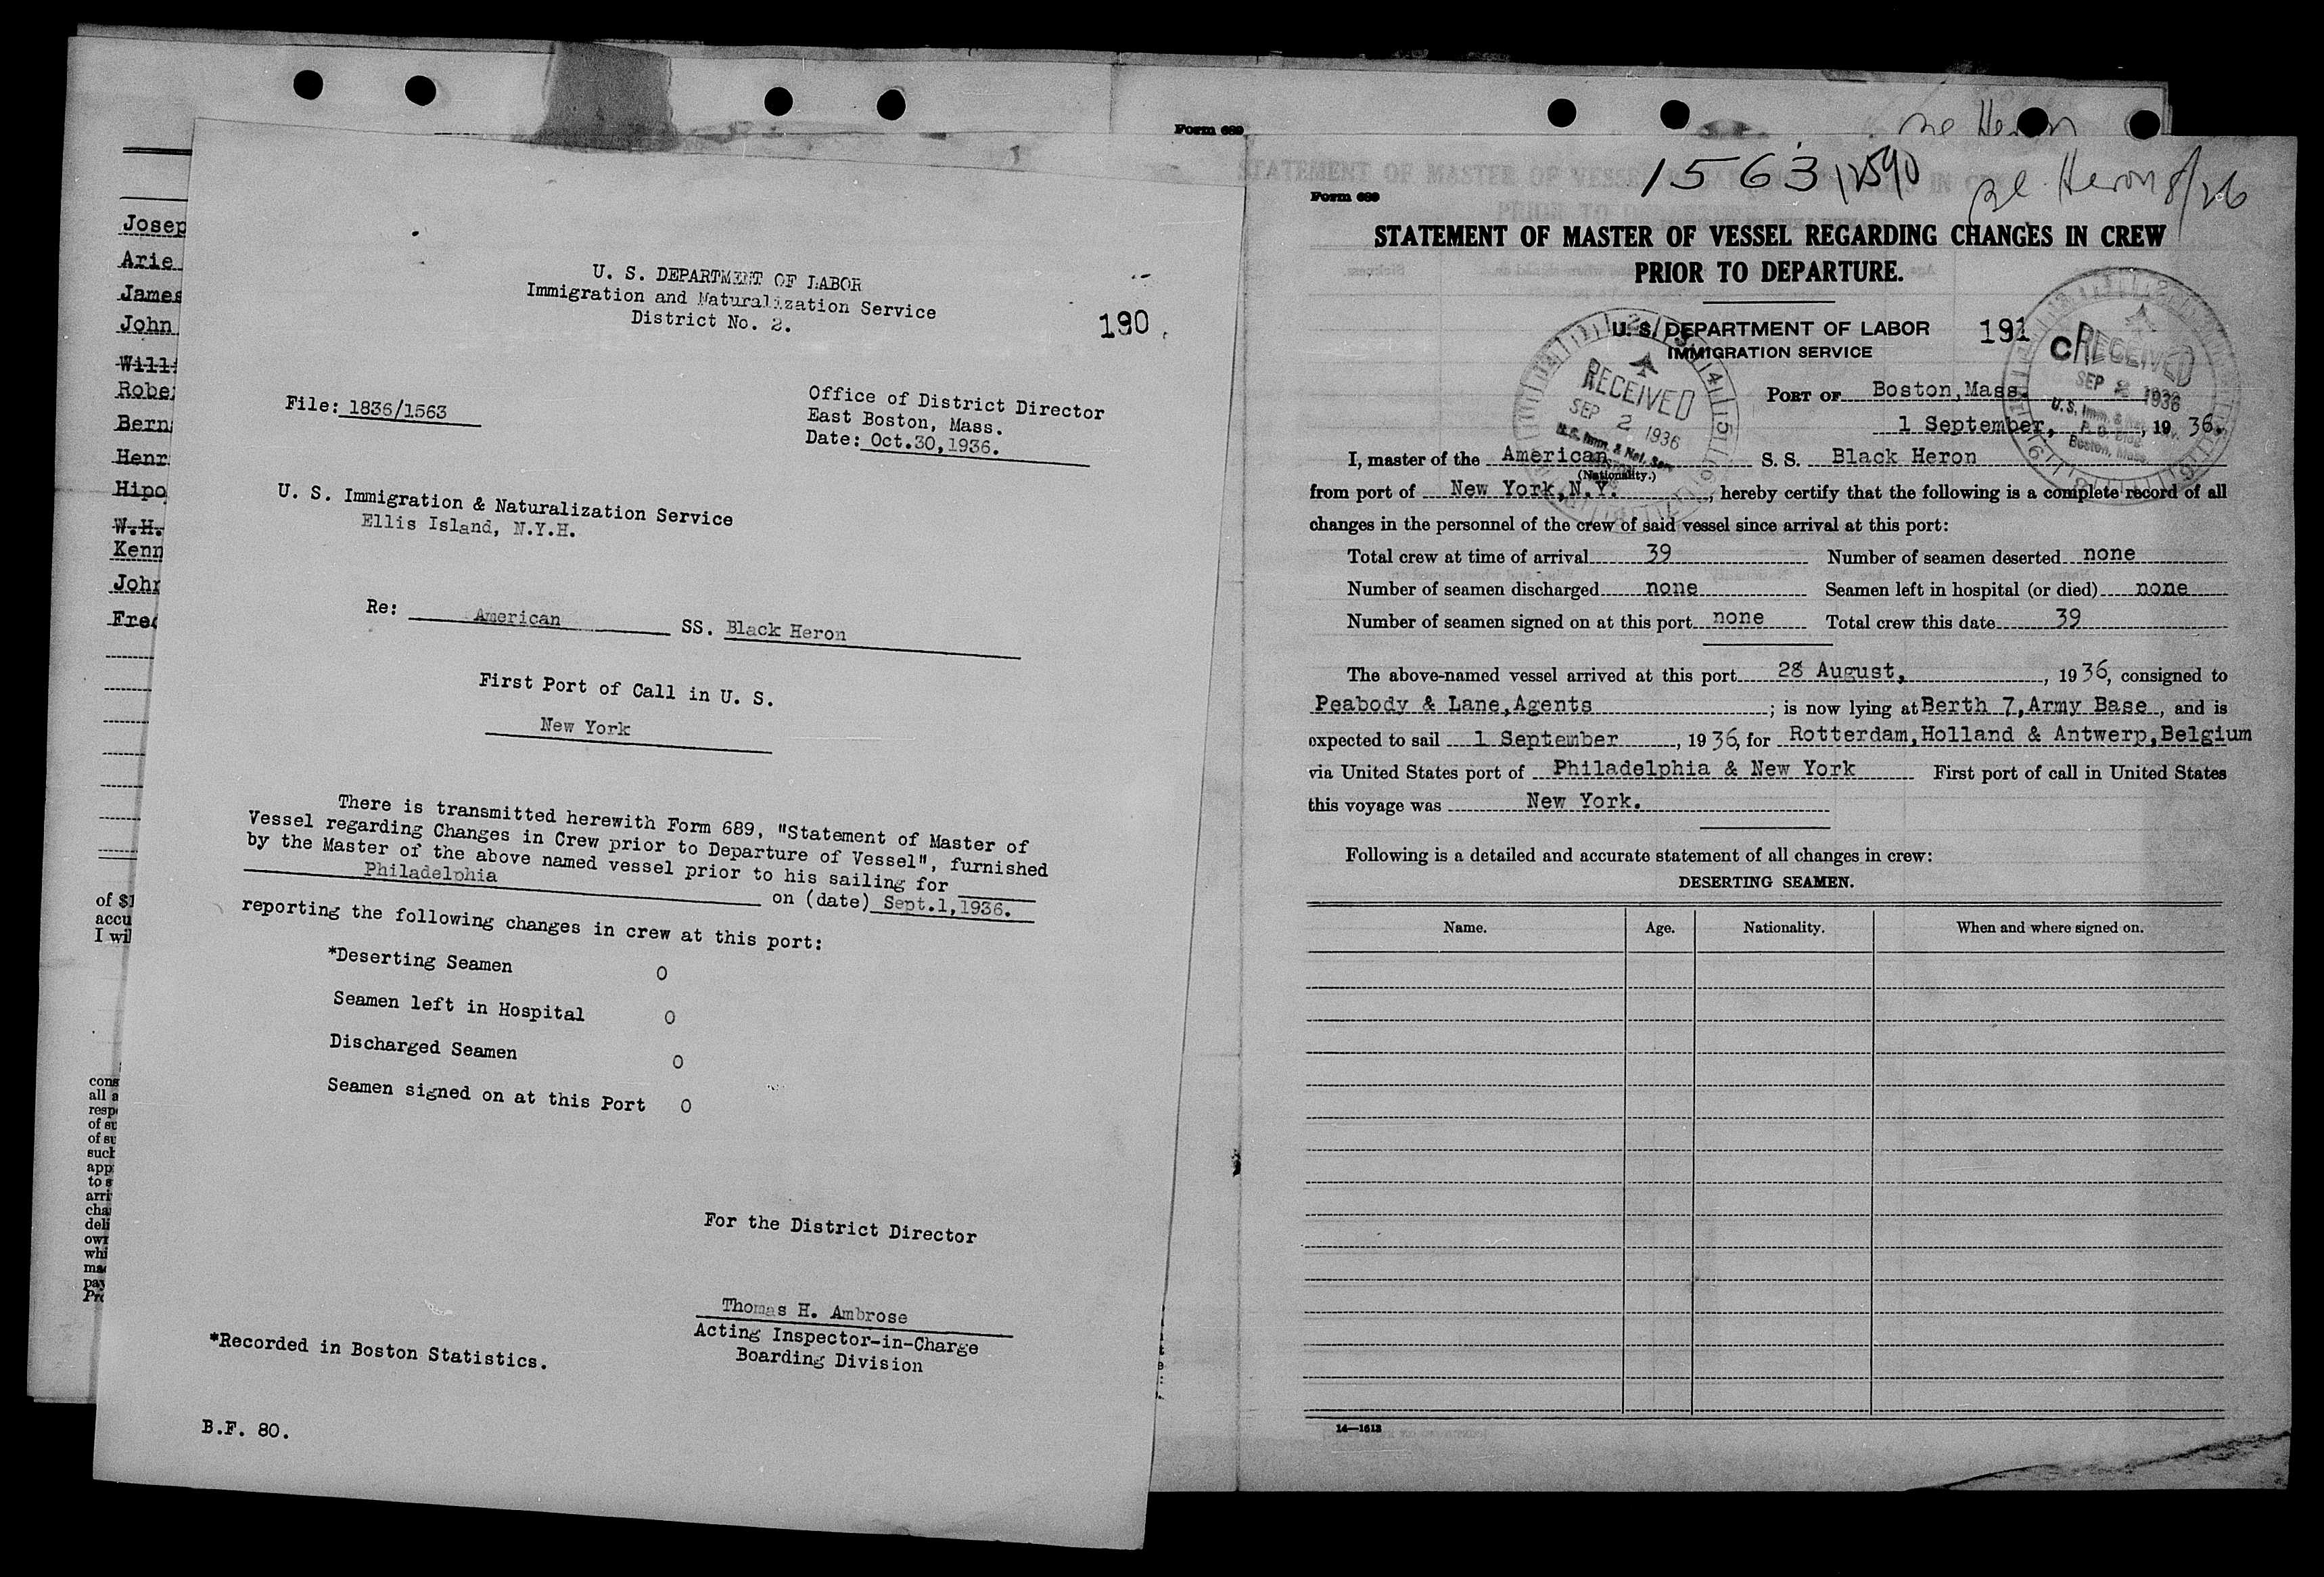 Josep
Arie
James
John
Willi
Rober
Bern
Henr
Hipo
W.H.
Kenn
John
Fred
of $1
accu
I wil
cons
all a
resp
of su
of su
such
app
to s
arri
cha
deli
own
whi
mad
pay
Pro
U. S. DEPARTMENT OF LABOR
Immigration and Naturalization Service
District No. 2.
190
File: 1836/1563
Office of District Director
East Boston, Mass.
Date: Oct.30,1936.
U. S. Immigration & Naturalization Service
Ellis Island, N.Y.H.
Re: American SS. Black Heron
First Port of Call in U. S.
New York
There is transmitted herewith Form 689, "Statement of Master of
Vessel regarding Changes in Crew prior to Departure of Vessel", furnished
by the Master of the above named vessel prior to his sailing for
Philadelphia on (date) Sept.1,1936.
reporting the following changes in crew at this port:
*Deserting Seamen 0
Seamen left in Hospital 0
Discharged Seamen 0
Seamen signed on at this Port 0
For the District Director
Thomas H. Ambrose
Acting Inspector-in-Charge
Boarding Division
*Recorded in Boston Statistics.
B.F. 80.
Form 689
Heron
1563 12590
Form 689
Bl. Heron 8/26
STATEMENT OF MASTER OF VESSEL REGARDING CHANGES IN CREW
PRIOR TO DEPARTURE.
U. S. DEPARTMENT OF LABOR
IMMIGRATION SERVICE
191
RECEIVED
SEP 2 1936
U.S. Imm. & Nat. Serv.
C RECEIVED
SEP 2 1936
U.S. Imm. & Nat. Serv.
P. O. Bldg.
Boston, Mass.
PORT OF Boston,Mass.
1 September, , 19 36.
I, master of the American S. S. Black Heron
(Nationality.)
from port of New York,N.Y. , hereby certify that the following is a complete record of all
changes in the personnel of the crew of said vessel since arrival at this port:
Total crew at time of arrival 39 Number of seamen deserted none
Number of seamen discharged none Seamen left in hospital (or died) none
Number of seamen signed on at this port none Total crew this date 39
The above-named vessel arrived at this port 28 August, , 1936, consigned to
Peabody & Lane,Agents ; is now lying at Berth 7,Army Base , and is
expected to sail 1 September , 1936, for Rotterdam,Holland & Antwerp,Belgium
via United States port of Philadelphia & New York First port of call in United States
this voyage was New York.
Following is a detailed and accurate statement of all changes in crew:
DESERTING SEAMEN.
Name. Age. Nationality. When and where signed on.
14—1613